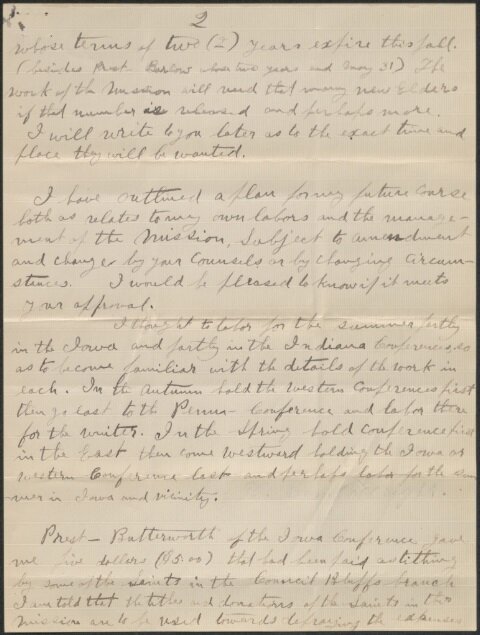 2
whose terms of two (2) years expire this fall.
(besides Prest- Barlow whose two years end May 31) The
work of the Mission will need that many new Elders
if that number is released and perhaps more.
I will write to you later as to the exact time and
place they will be wanted.
I have outlined a plan for my future course
both as relates to my own labors and the manage-
ment of the Mission, Subject to amendment
and changes by your Counsels or by changing Circum-
stances. I would be pleased to know if it meets
your approval.
I thought to labor for the summer partly
in the Iowa and partly in the Indiana Conferences, so
as to become familiar with the details of the work in
each. In the autumn hold the western Conferences first
then go east to the Penn- Conference and labor there
for the winter. In the Spring hold Conference first
in the East then come westward holding the Iowa or
western Conference last and perhaps labor for the sum
mer in Iowa and vicinity.
Prest- Butterworth of the Iowa Conference gave
me five dollars ($5.00) that had been paid as tithing
by some of the saints in the Council Bluffs branch
I am told that the tithes and donations of the saints in this
Mission are to be used towards defraying the expenses